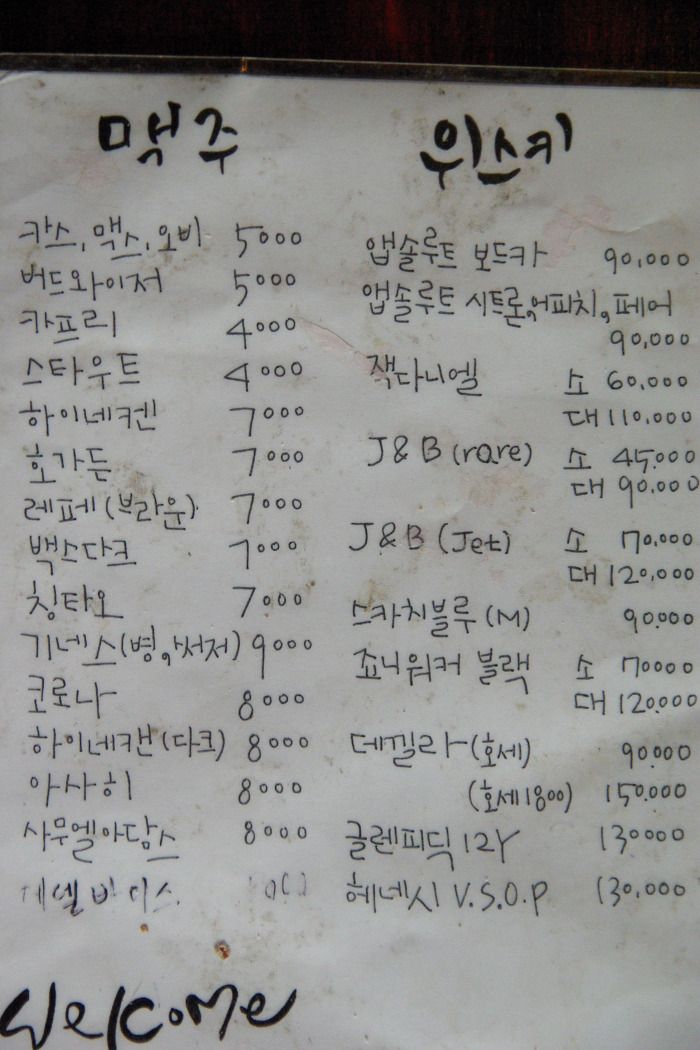 맥주
카스, 맥스, 오비 5000
버드와이저 5000
카프리 4000
스타우트 4000
하이네켄 7000
호가든 7000
레페(브라운) 7000
벡스다크 7000
칭타오 7000
기네스(병, 써저) 9000
코로나 8000
하이네캔(다크) 8000
아사히 8000
사무엘아담스 8000
위스키
앱솔루트 보드카 90,000
앱솔루트 시트론, 어피치, 페어
90,000
잭다니엘 소 60,000
대 110,000
J&B (rare) 소 45.000
대 90,000
J&B (Jet) 소 70,000
대 120,000
스카치블루 (M) 90.000
죠니워커 블랙 소 70000
대 120.000
데낄라 (호세) 90.000
(호세1800) 150.000
글렌피딕 12Y 130000
헤네시 V.S.O.P 130,000
Welcome